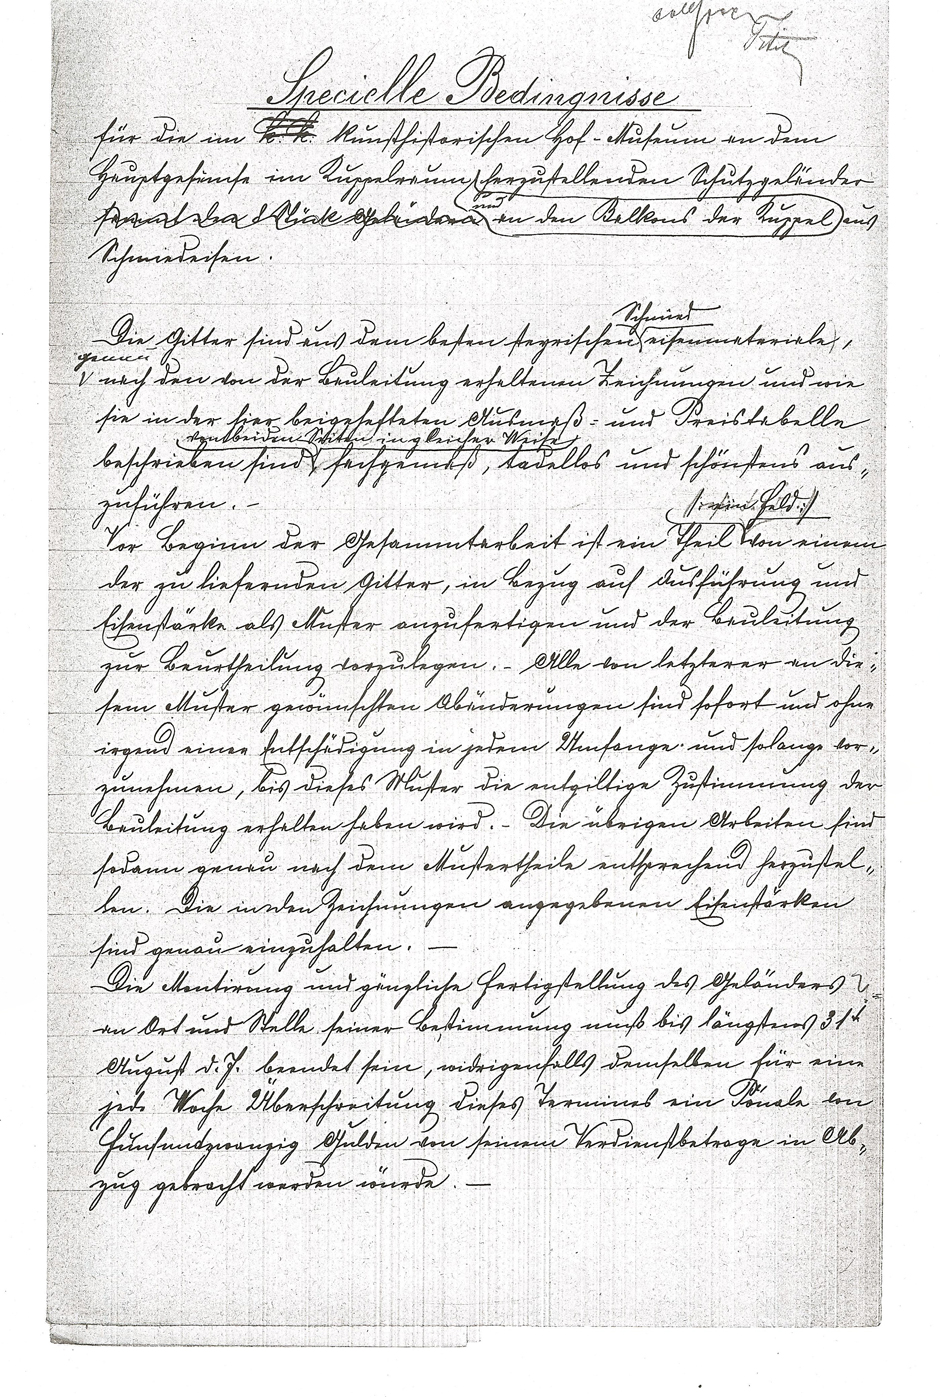 Specielle Bedingnisse
für die im k. k. kunsthistorischen Hof-Museum an dem
Hauptgesimse im Kuppelraum herzustellenden Schutzgeländer
sammt den 8 Stück Geländern und an den Balkons der Kuppel aus
Schmiedeisen.
Schmied
Die Gitter sind aus dem besten steyrischen eisenmateriale,
genau
nach den von der Bauleitung erhaltenen Zeichnungen und wie
sie in der hier beigehefteten Ausmaß- und Preistabelle
von beiden Seiten in gleicher Weise
beschrieben sind, fachgemäß, tadellos und schönstens aus„
zuführen. -
/: ein Feld :/
Vor Beginn der Gesammtarbeit ist ein Theil von einem
der zu liefernden Gitter, in Bezug auf Ausführung und
Eisenstärke als Muster anzufertigen und der Bauleitung
zur Beurtheilung vorzulegen. - Alle von letzterer an die„
sem Muster gewünschten Abänderungen sind sofort und ohne
irgend einer Entschädigung in jedem Umfange und solange vor„
zunehmen, bis dieses Muster die entgiltige Zustimmung der
Bauleitung erhalten haben wird. - Die übrigen Arbeiten sind
sodann genau nach dem Mustertheile entsprechend herzustel„
len. Die in den Zeichnungen angegebenen Eisenstärken
sind genau einzuhalten. —
Die Montirung und gänzliche Fertigstellung des Geländers
an Ort und Stelle seiner Bestimmung muß bis längstens 31t
August d. J. beendet sein, widrigenfalls demselben für eine
jede Woche Überschreitung dieses Termines ein Pönale von
Fünfundzwanzig Gulden von seinem Verdienstbetrage in Ab„
zug gebracht werden würde. —